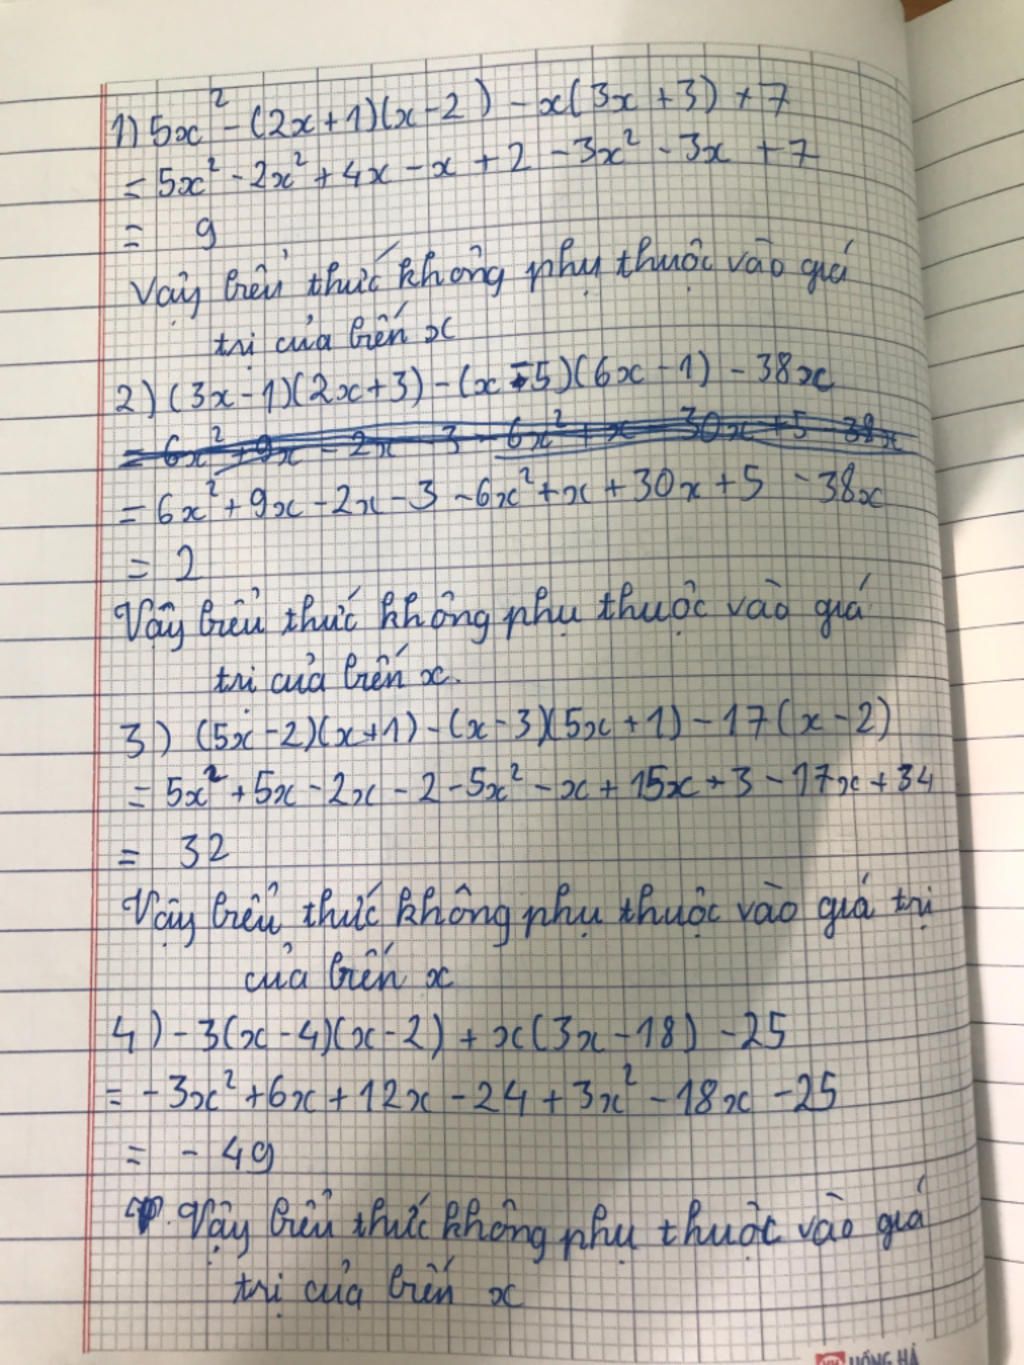 1) 5x² - (2x+1)(x-2) - x(3x+3) + 7
= 5x² - 2x² + 4x - x + 2 - 3x² - 3x + 7
= 9
Vậy biểu thức không phụ thuộc vào giá
trị của biến x
2) (3x-1)(2x+3) - (x-5)(6x-1) - 38x
= 6x² + 9x - 2x - 3 - 6x² + x - 30x + 5 - 38x
= 6x² + 9x - 2x - 3 - 6x² + x + 30x + 5 - 38x
= 2
Vậy biểu thức không phụ thuộc vào giá
trị của biến x.
3) (5x-2)(x+1) - (x-3)(5x+1) - 17(x-2)
= 5x² + 5x - 2x - 2 - 5x² - x + 15x + 3 - 17x + 34
= 32
Vậy biểu thức không phụ thuộc vào giá trị
của biến x
4) -3(x-4)(x-2) + x(3x-18) - 25
= -3x² + 6x + 12x - 24 + 3x² - 18x - 25
= - 49
Vậy biểu thức không phụ thuộc vào giá
trị của biến x
HỒNG HÀ